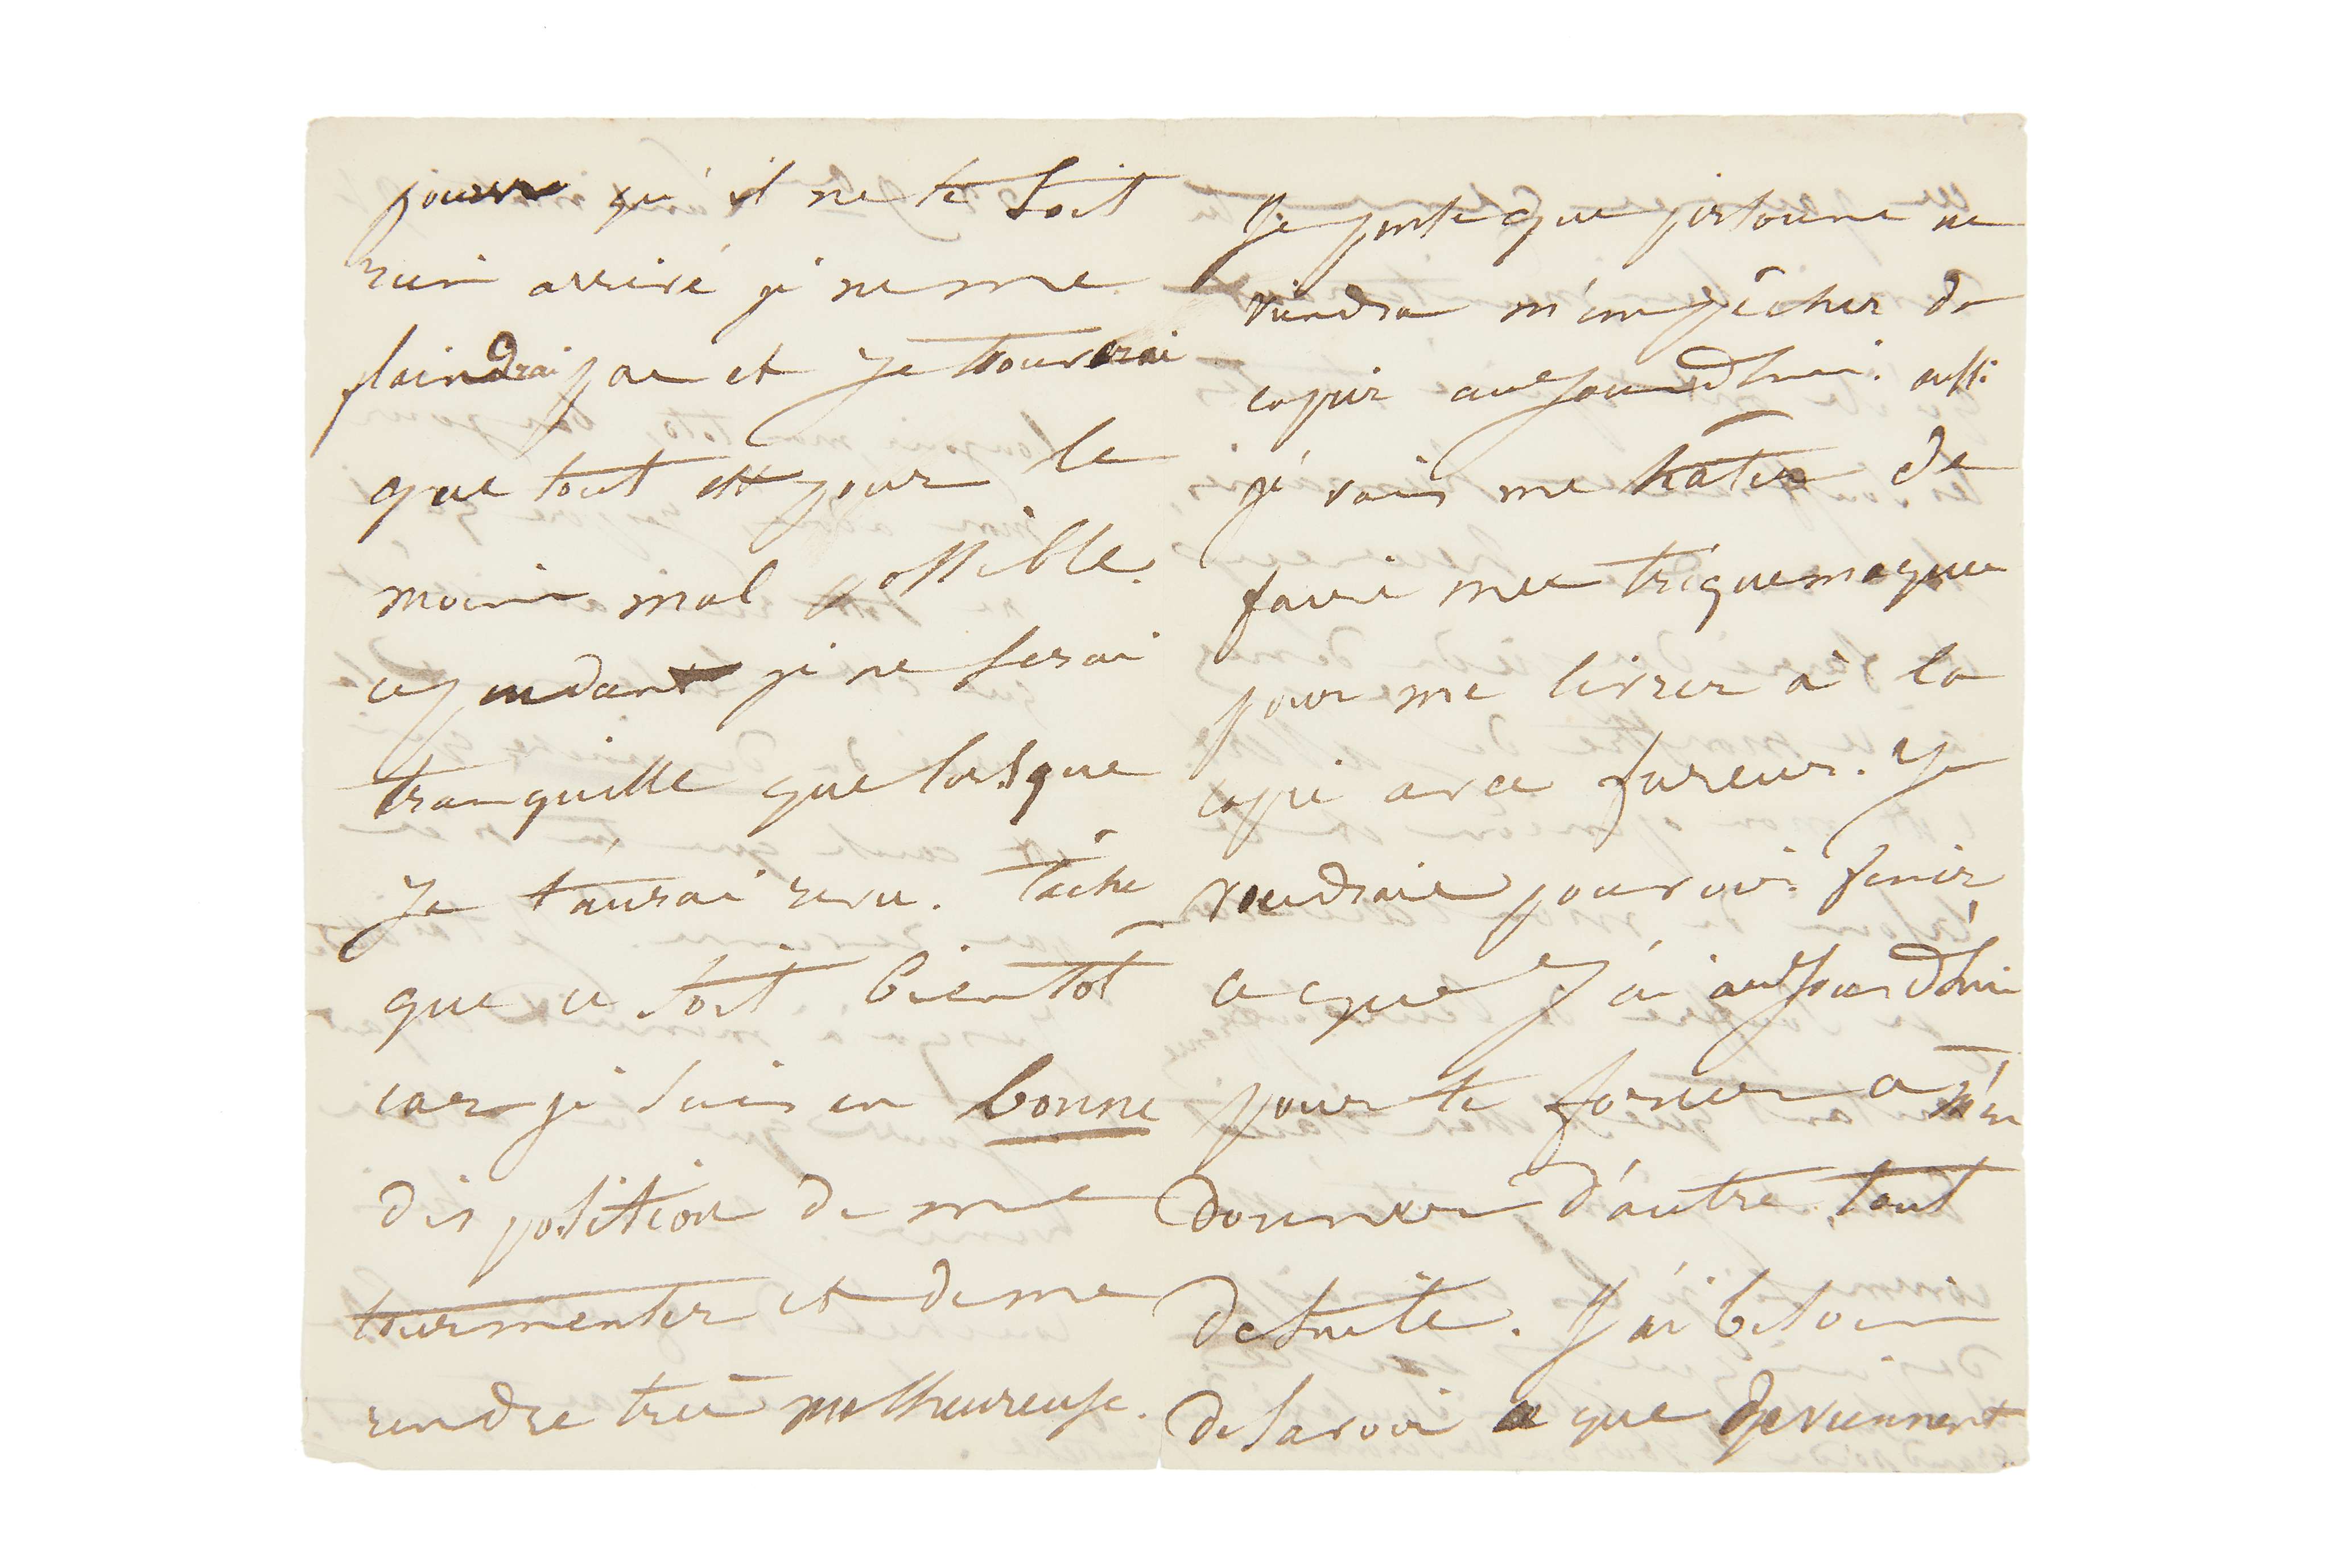 pourvu qu'il ne te soit
rien arrivé je ne me
plaindrai pas et je trouverai
que tout est pour le
moins mal possible.
cependant je ne serai
tranquille que lorsque
je t'aurai revu. Tâche
que ce soit bientôt
car je suis en bonne
disposition de me
tourmenter et de me
rendre très malheureuse.
Je pense que personne ne
viendra m'empêcher de
copier aujourd'hui. aussi
je vais me hâter de
faire mes triquemaques
pour me livrer à la
copie avec fureur. Je
voudrais pouvoir finir
ce que j'ai aujourd'hui
pour te forcer à m'en
donner d'autre tout
de suite. J'ai besoin
de savoir ce que deviennent